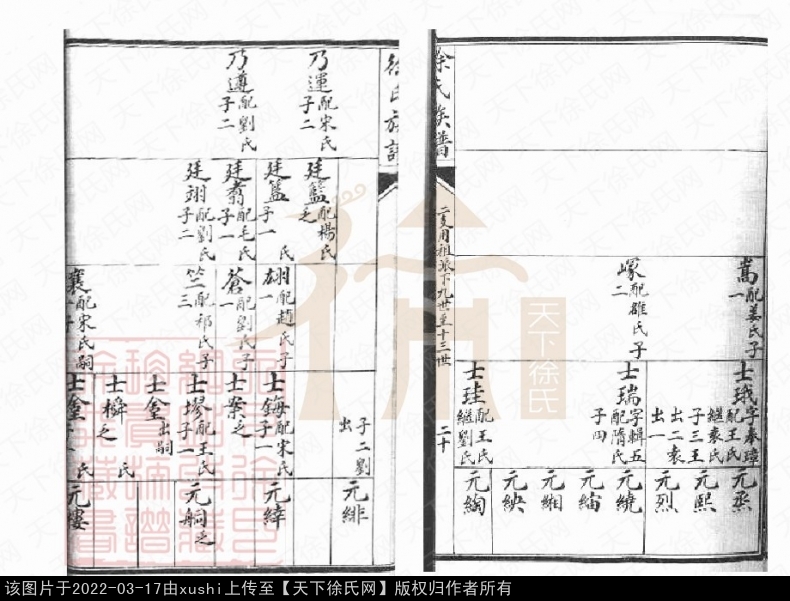 徐氏族譜
二支用祖派下九世至十三世
二十
嵩配姜氏子一
塚配雒氏子二
士珴字奉璋
配王氏
繼袁氏
子三王
出二袁
出一
士瑞字輯五
配隋氏
子四
士珪配王氏
繼劉氏
元烝
元熙
元烈
元繞
元緬
元緗
元紻
元絢
徐氏族譜
乃運配宋氏
子二
乃遵配劉氏
子二
廷籃配楊氏
之
廷
子一
氏
廷翥配毛氏
子一
廷翊配劉氏
子二
翃配趙氏子一
蒼配劉氏子一
竺配祁氏子三
襄配宋氏嗣
子
子二劉
出
士鋂配宋氏
子一
士案之
士璆配王氏
子一
士金出嗣
士橓之
氏
士金
子一
氏
元緋
元緯
元舸之
元縷
天下徐氏网
该图片于2022-03-17由xushi上传至【天下徐氏网】版权归作者所有